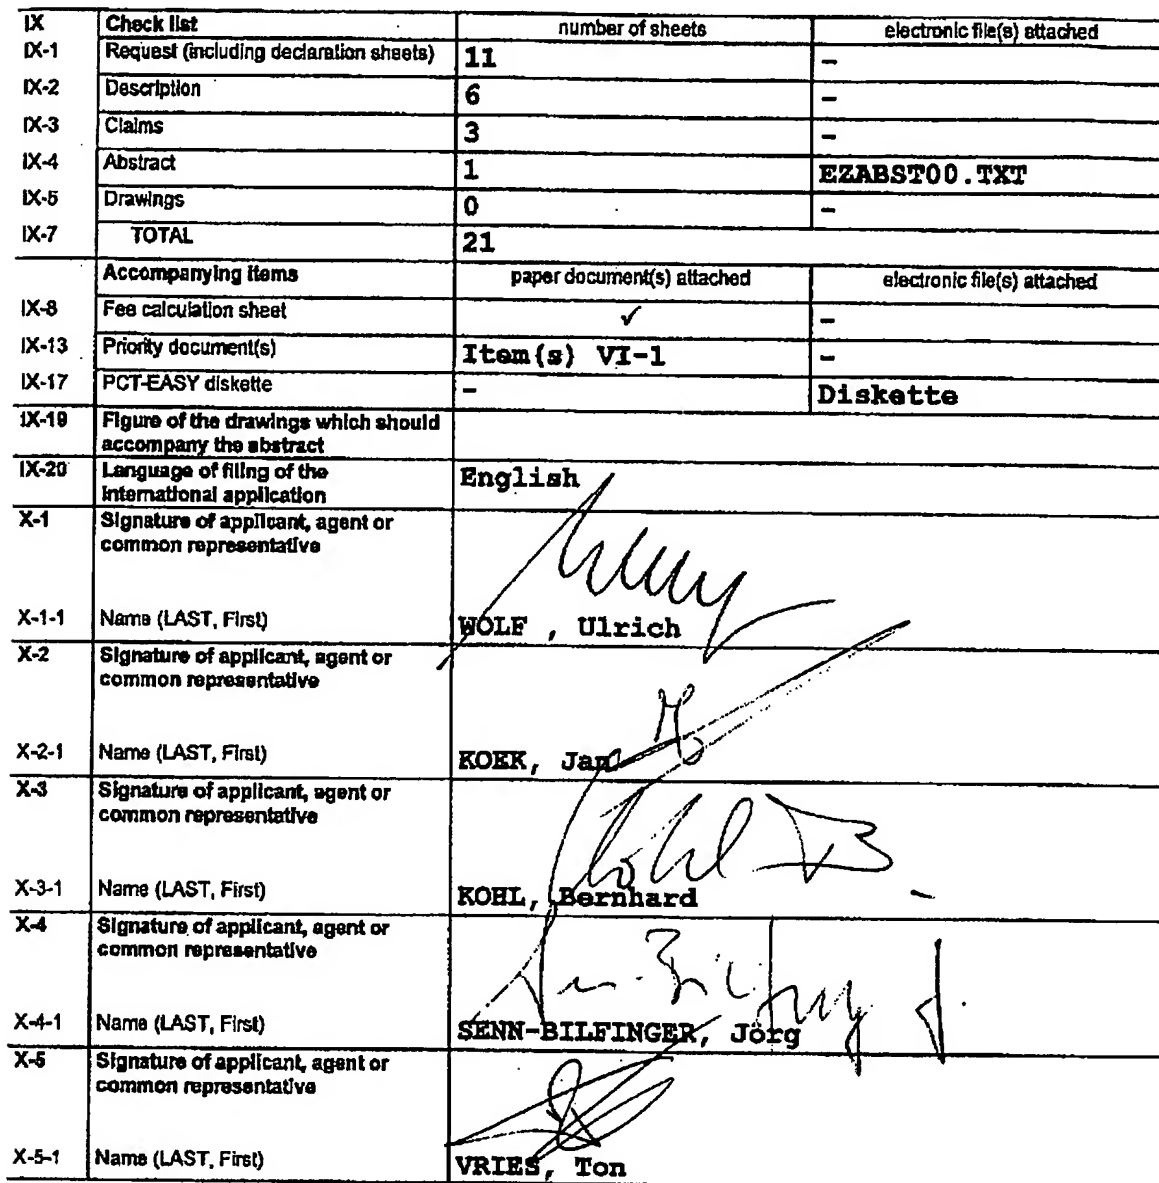 IX Check list number of sheets electronic file(s) attached
IX-1 Request (including declaration sheets) 11 –
IX-2 Description 6 –
IX-3 Claims 3 –
IX-4 Abstract 1 EZABST00.TXT
IX-5 Drawings 0 –
IX-7 TOTAL 21
Accompanying items paper document(s) attached electronic file(s) attached
IX-8 Fee calculation sheet ✓ –
IX-13 Priority document(s) Item(s) VI-1 –
IX-17 PCT-EASY diskette – Diskette
IX-19 Figure of the drawings which should
accompany the abstract
IX-20 Language of filing of the
international application English
X-1 Signature of applicant, agent or
common representative
X-1-1 Name (LAST, First) WOLF , Ulrich
X-2 Signature of applicant, agent or
common representative
X-2-1 Name (LAST, First) KOEK, Jan
X-3 Signature of applicant, agent or
common representative
Kohl B
X-3-1 Name (LAST, First) KOHL, Bernhard
X-4 Signature of applicant, agent or
common representative
X-4-1 Name (LAST, First) SENN-BILFINGER, Jörg
X-5 Signature of applicant, agent or
common representative
X-5-1 Name (LAST, First) VRIES, Ton